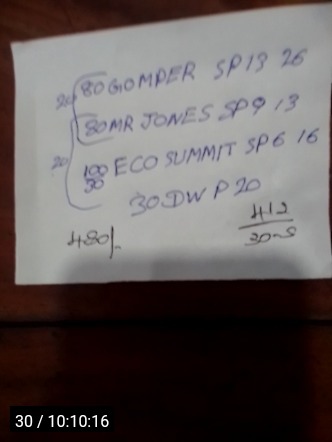 20 80 GOMPER SP 13 26
80 MR JONES SP 9 13
20 100 ECO SUMMIT SP 6 16
30
30 DW P 20
480/-
412
30-S
30 / 10:10:16